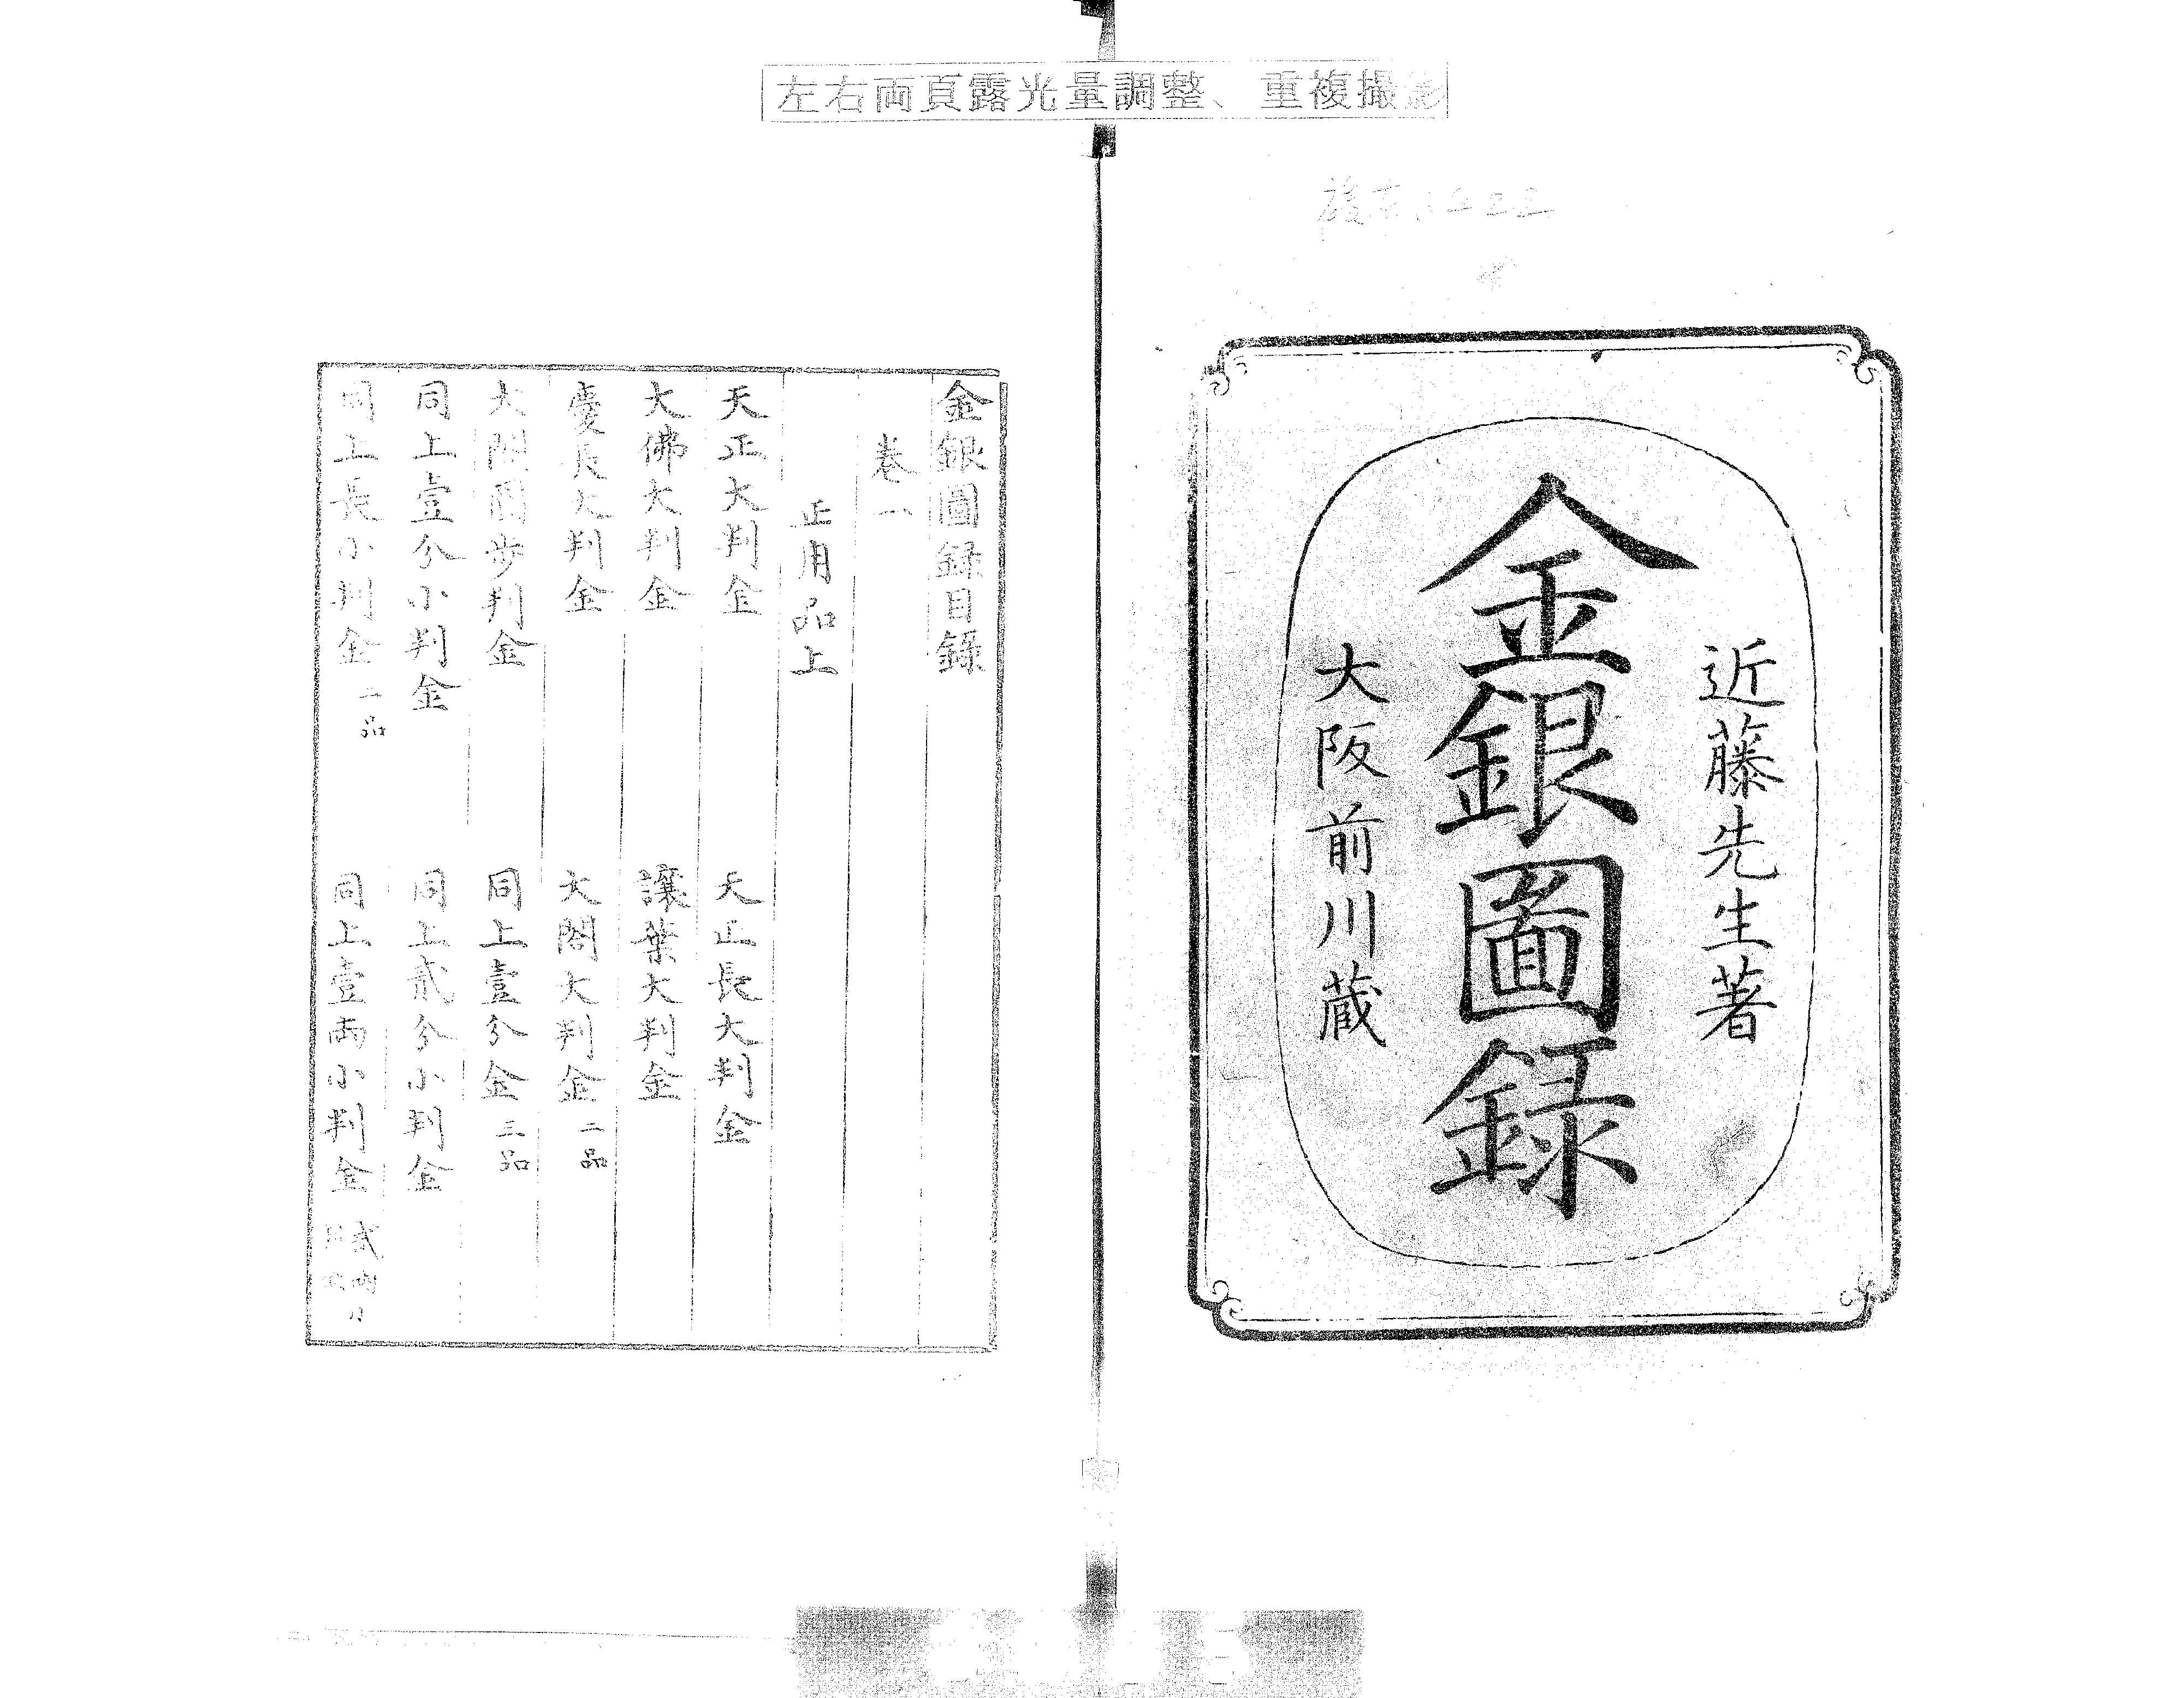 左右両頁露光量調整、重複撮影
近藤先生著
金銀圖録
大阪前川蔵
金銀圖録目録
巻一
正用品上
天正大判金　天正長大判金
大佛大判金　譲葉大判金
慶長大判金　太閤大判金二品
太閤圓歩判金　同上壹分金三品
同上壹分小判金　同上貳分小判金
同上長小判金一品　同上壹両小判金